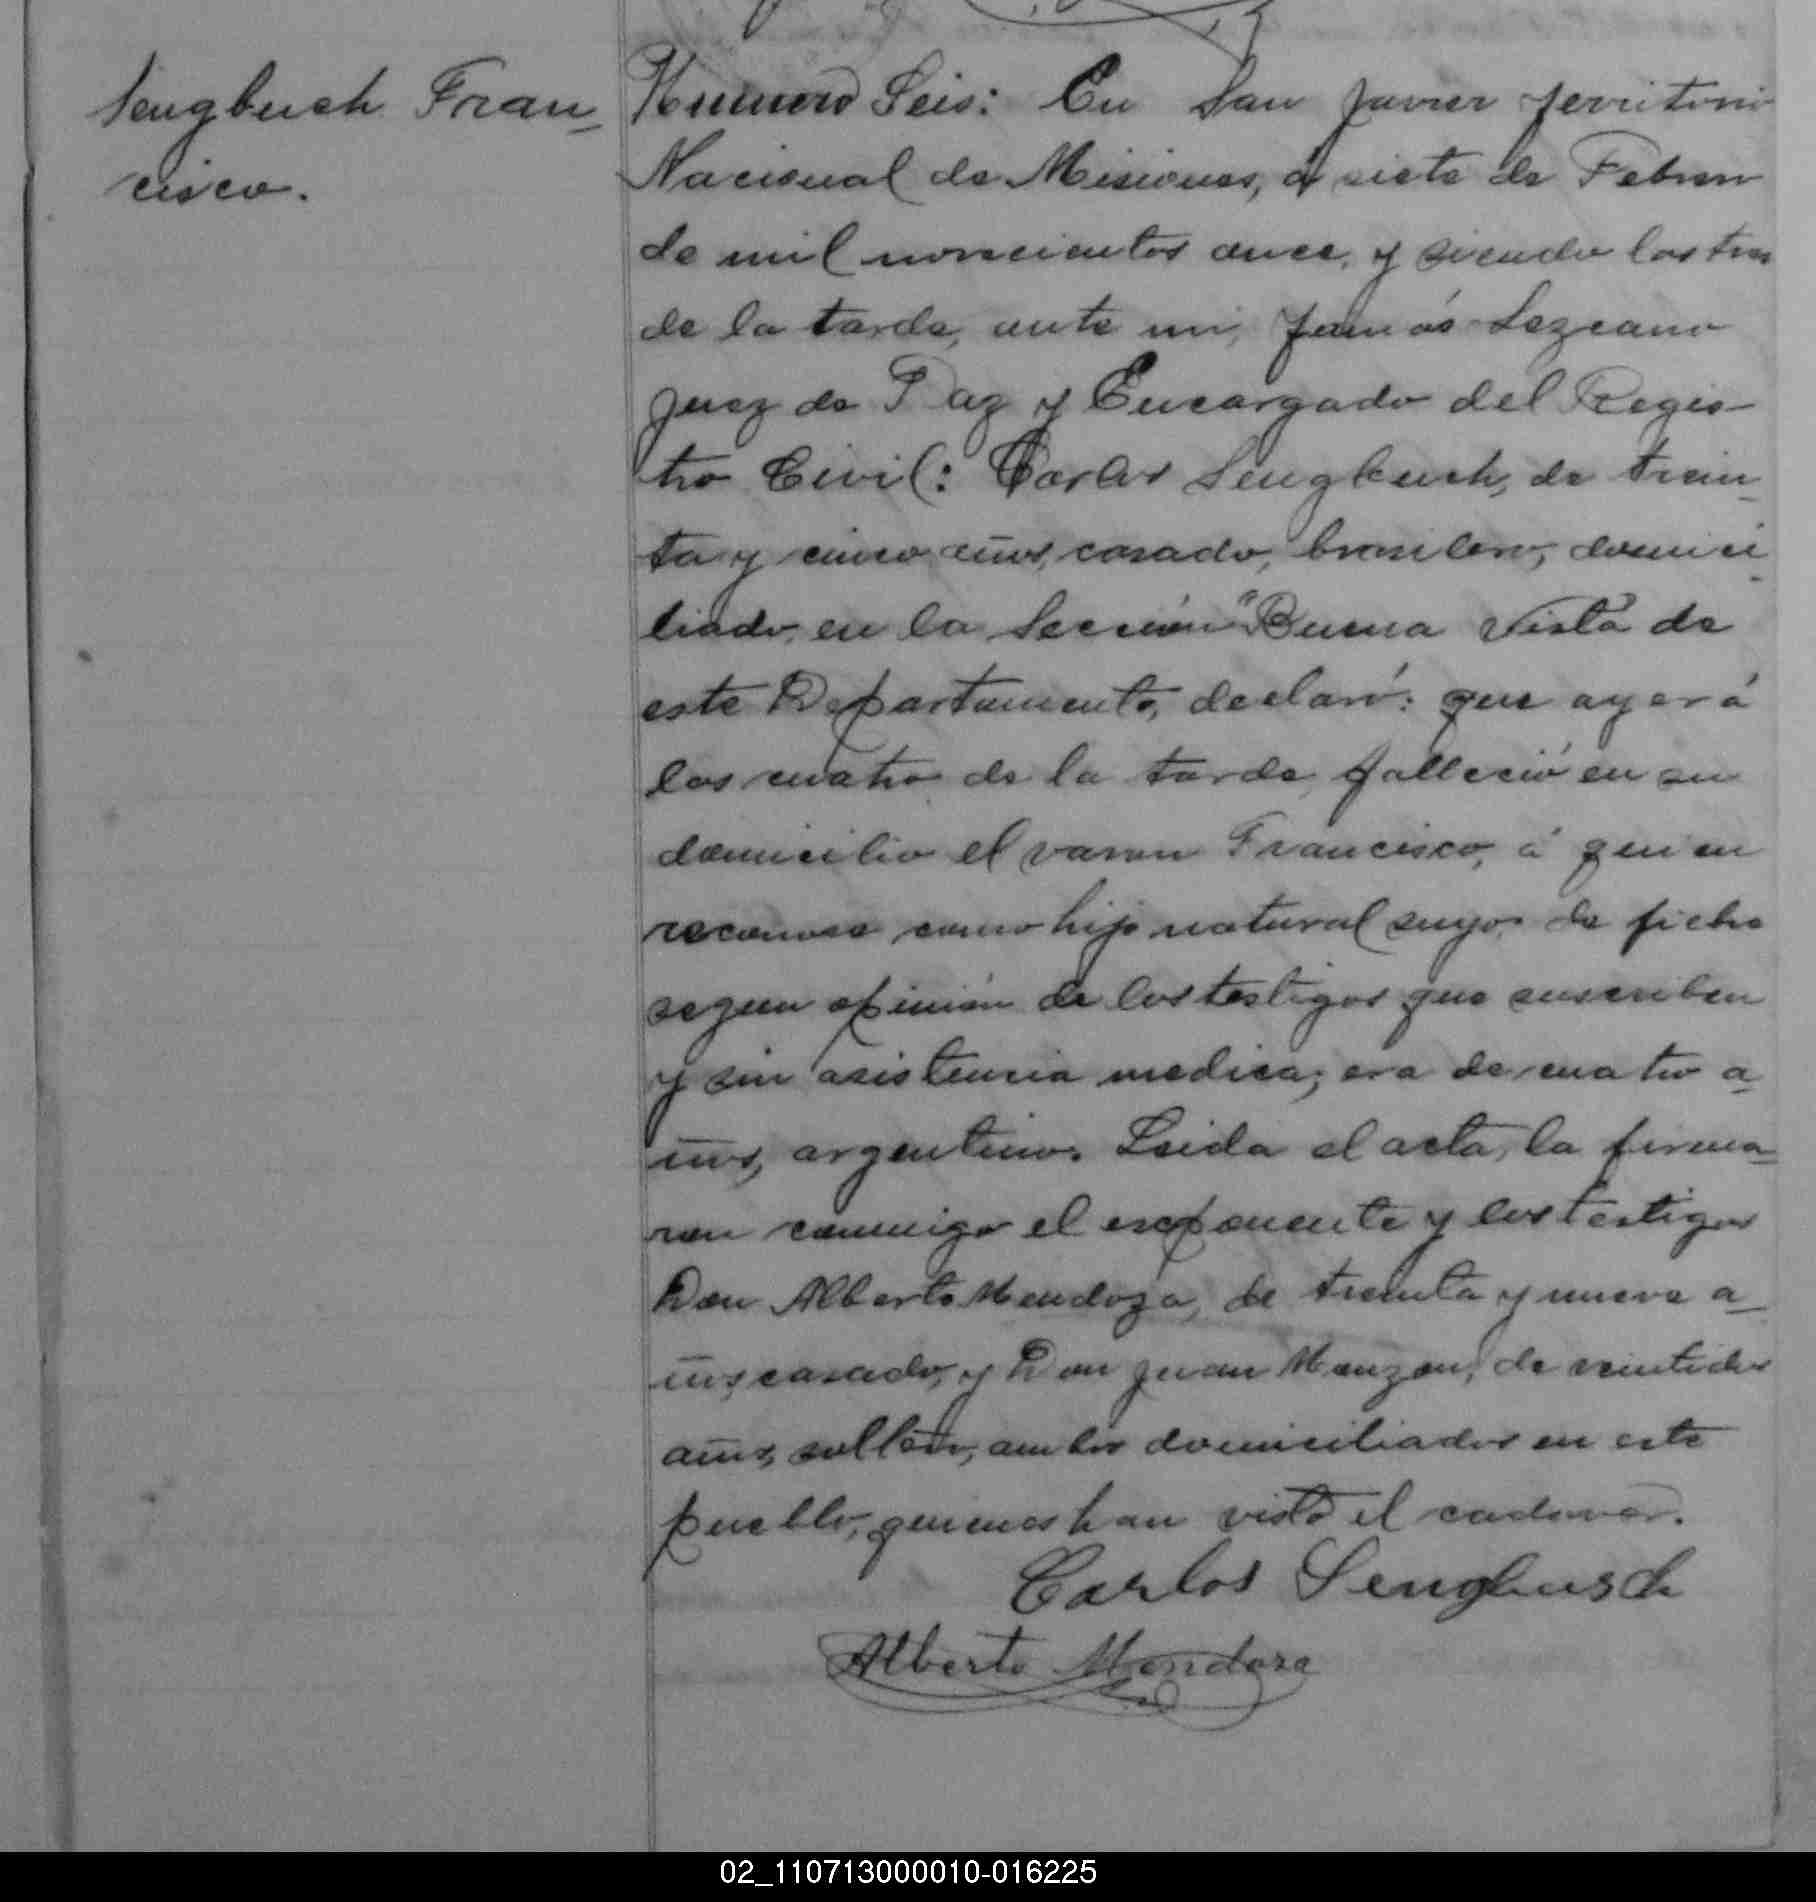 Sengbuch Fran-
cisco.
Numero Seis: En San Javier Territorio
Nacional de Misiones, á siete de Febrero
de mil novecientos once, y siendo las tres
de la tarde, ante mi, Lezcano
Juez de Paz y Encargado del Regis-
tro Civil: Carlos Sengbuch, de trein-
ta y cinco años, casado, brasilero, domici-
liado, en la Sección "Buena Vista de
este Departamento, declaró: que ayer á
las cuatro de la tarde, falleció en su
domicilio el varon Francisco, á quien
reconoce como hijo natural suyo, de fiebre
segun opinión de los testigos que suscriben
y sin asistencia medica; era de cuatro a-
ños, argentino. Leida el acta, la firma-
ron conmigo el exponente y los testigos
Don Alberto Mendoza, de treinta y nueve a-
ños, casado, y Don Juan Manzon, de veintidos
años, soltero, ambos domiciliados en este
pueblo, quienes han visto el cadaver.
Carlos Sengbusch
Alberto Mendoza
02_110713000010-016225